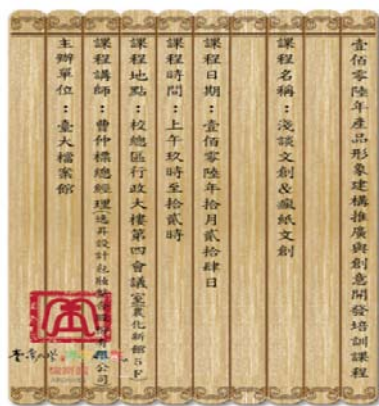 壹佰零陸年產品形象建構推廣與創意開發培訓課程
課程名稱：淺談文創&瘋紙文創
課程日期：壹佰零陸年拾月貳拾肆日
課程時間：上午玖時至拾貳時
課程地點：校總區行政大樓第四會議室(農化新館5F)
課程講師：曹仲樑總經理(逸昇設計包裝 有限公司)
主辦單位：臺大檔案館